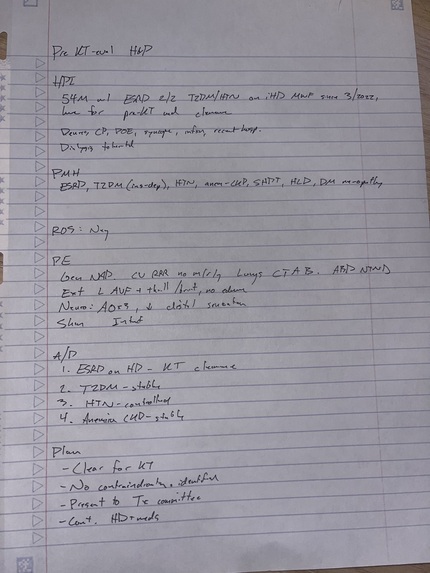 Pre KT-eval H&P
HPI
54M w/ ESRD 2/2 T2DM/HTN on iHD MWF since 3/2022,
here for pre-KT med clearance
Denies CP, DOE, syncope, infxn, recent hosp.
Dialysis tolerated
PMH
ESRD, T2DM (ins-dep), HTN, anem-CKD, SHPT, HLD, DM neuropathy
ROS: Neg
PE
Gen NAD. CV RRR no m/r/g Lungs CTAB. ABD NTND
Ext L AVF + thrill/bruit, no edema
Neuro: AOx3, ↓ distal sensation
Skin Intact
A/P
1. ESRD on HD - KT clearance
2. T2DM - stable
3. HTN - controlled
4. Anemia CKD - stable
Plan
- Clear for KT
- No contraindications identified
- Present to Tx committee
- Cont. HD + meds